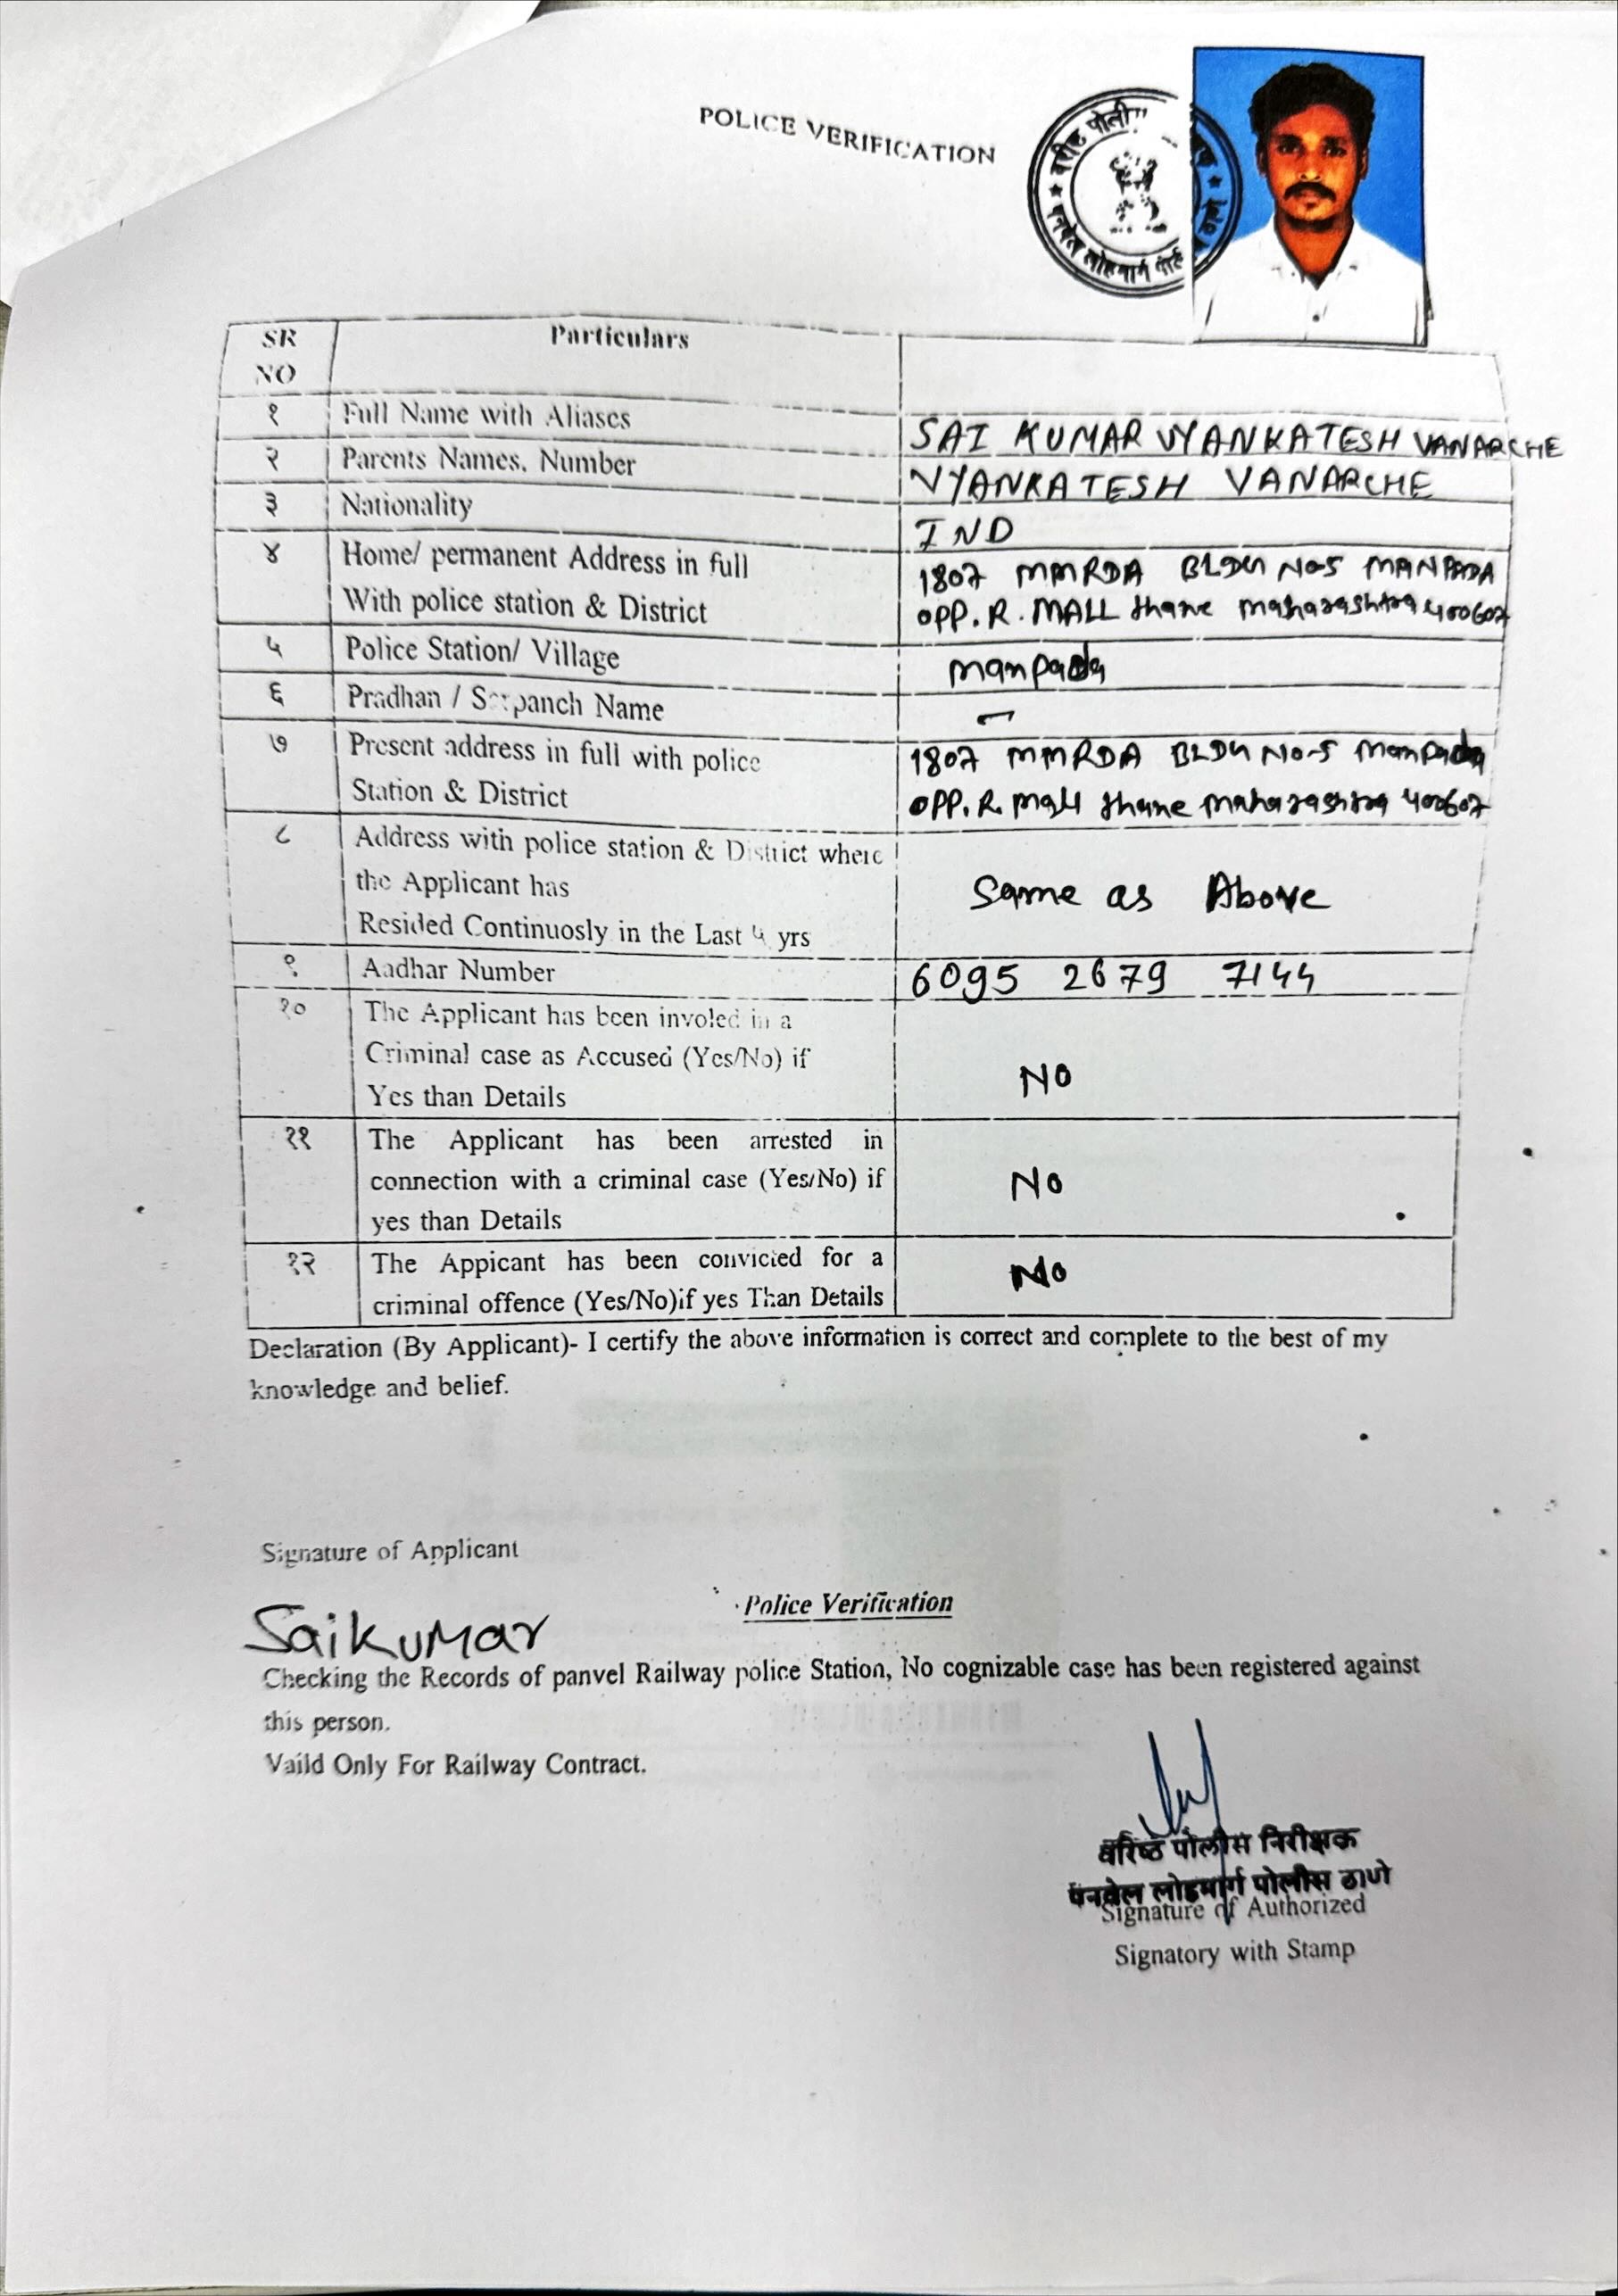 POLICE VERIFICATION
SR NO Particulars
१ Full Name with Aliases SAI KUMAR VYANKATESH VANARCHE
२ Parents Names, Number VYANKATESH VANARCHE
३ Nationality IND
४ Home/ permanent Address in full 1807 MMRDA BLDG NO-5 MANPADA
With police station & District OPP. R. MALL thane maharashtra 400607
५ Police Station/ Village manpada
६ Pradhan / Sarpanch Name -
७ Present address in full with police 1807 MMRDA BLDG NO-5 manpada
Station & District OPP. R. mall thane maharashtra 400607
८ Address with police station & District where
the Applicant has Same as Above
Resided Continuosly in the Last yrs
९ Aadhar Number 6095 2679 7144
१० The Applicant has been involed in a
Criminal case as Accused (Yes/No) if NO
Yes than Details
११ The Applicant has been arrested in
connection with a criminal case (Yes/No) if No
yes than Details
१२ The Appicant has been convicted for a No
criminal offence (Yes/No)if yes Than Details
Declaration (By Applicant)- I certify the above information is correct and complete to the best of my
knowledge and belief.
Signature of Applicant
Police Verification
Saikumar
Checking the Records of panvel Railway police Station, No cognizable case has been registered against
this person.
Vaild Only For Railway Contract.
वरिष्ठ पोलीस निरीक्षक
पनवेल लोहमार्ग पोलीस ठाणे
Signature of Authorized
Signatory with Stamp